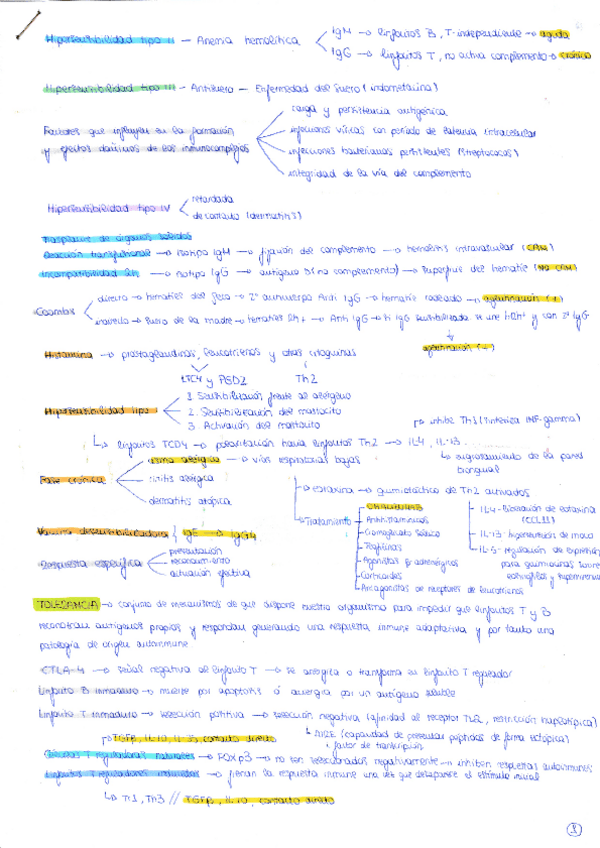 Hipersensibilidad tipo II → Anemia hemolítica
IgM → linfocitos B, T-independiente → aguda
IgG → linfocitos T, no activa complemento → crónica
Hipersensibilidad tipo III → Antisuero → Enfermedad del suero (indometacina)
Factores que influyen en la formación y efectos dañinos de los inmunocomplejos
carga y persistencia antigénica
infecciones víricas con periodo de latencia intracelular
infecciones bacterianas persistentes (Streptococos)
integridad de la vía del complemento
Hipersensibilidad tipo IV
retardada
de contacto (dermatitis)
Trasplante de órganos sólidos
Reacción transfusional → isotipo IgM → fijación del complemento → hemolisis intravascular
Incompatibilidad Rh → isotipo IgG → antígeno D (no complemento) → superficie del hematíe
Coombs
directo → hematíes del feto → 2º anticuerpo Anti IgG → hematíe rodeado → aglutinación (+)
indirecto → suero de la madre → hematíes Rh+ → Anti IgG → si IgG sensibilizada se une
aglutinación (-)
Histamina → prostaglandinas, leucotrienos y otras citoquinas
LTC4 y PGD2
Th2
Hipersensibilidad tipo I
1. Sensibilización frente al alérgeno
2. Sensibilización del mastocito
3. Activación del mastocito
inhibe Th1 (sintetiza INF-gamma)
linfocitos TCD4 → polarización hacia linfocitos Th2 → IL4, IL-13
engrosamiento de la pared bronquial
Fase crónica
asma alérgica → vías respiratorias bajas
rinitis alérgica
dermatitis atópica
eotaxina → quimiotáctico de Th2 activados
Tratamiento
Antihistamínicos
Cromoglicato sódico
Teofilinas
Agonistas β adrenérgicos
Corticoides
Antagonistas de receptores de leucotrienos
IL-4 - liberación de eotaxina (CCL11)
IL-13 - hipersecreción de moco
IL-5 - regulación de expresión
para quimiocinas sobre
Vacuna desensibilizadora { IgE → IgG4
Respuesta específica
presentación
reconocimiento
activación efectiva
TOLERANCIA → conjunto de mecanismos de que dispone nuestro organismo para impedir que linfocitos T y B
reconozcan antígenos propios y respondan generando una respuesta inmune adaptativa y por tanto una
patología de origen autoinmune
CTLA-4 → señal negativa al linfocito T → se anergiza o transforma en linfocito T regulador
Linfocito B inmaduro → muere por apoptosis ó anergia por un antígeno soluble
Linfocito T inmaduro → selección positiva → selección negativa (afinidad al receptor TCR, restricción haplotípica)
TGFβ, IL-10, IL-35, contacto directo
AIRE (capacidad de presentar péptidos de forma ectópica)
factor de transcripción
Células T reguladoras naturales → FOXp3 → no son seleccionados negativamente → inhiben respuestas autoinmunes
Linfocitos T reguladores inducidos → frenan la respuesta inmune una vez que desaparece el estímulo inicial
Tr1, Th3 // TGFβ, IL-10, contacto directo